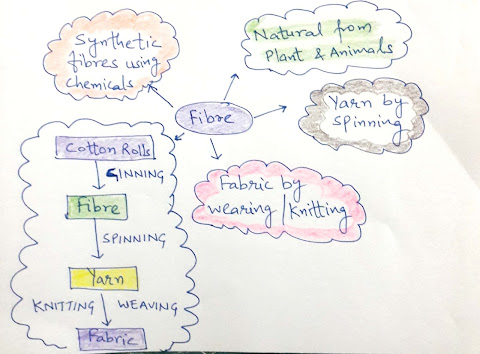 Synthetic
fibres using
chemicals
Natural from
Plant & Animals
Fibre
Yarn by
Spinning
Fabric by
wearing / Knitting
Cotton Rolls
GINNING
Fibre
SPINNING
Yarn
KNITTING WEAVING
Fabric